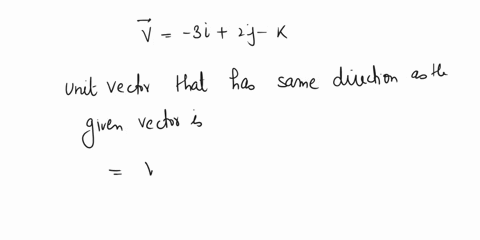 V⃗ = -3i + 2j - k
unit vector that has same direction as the
given vector is
= v